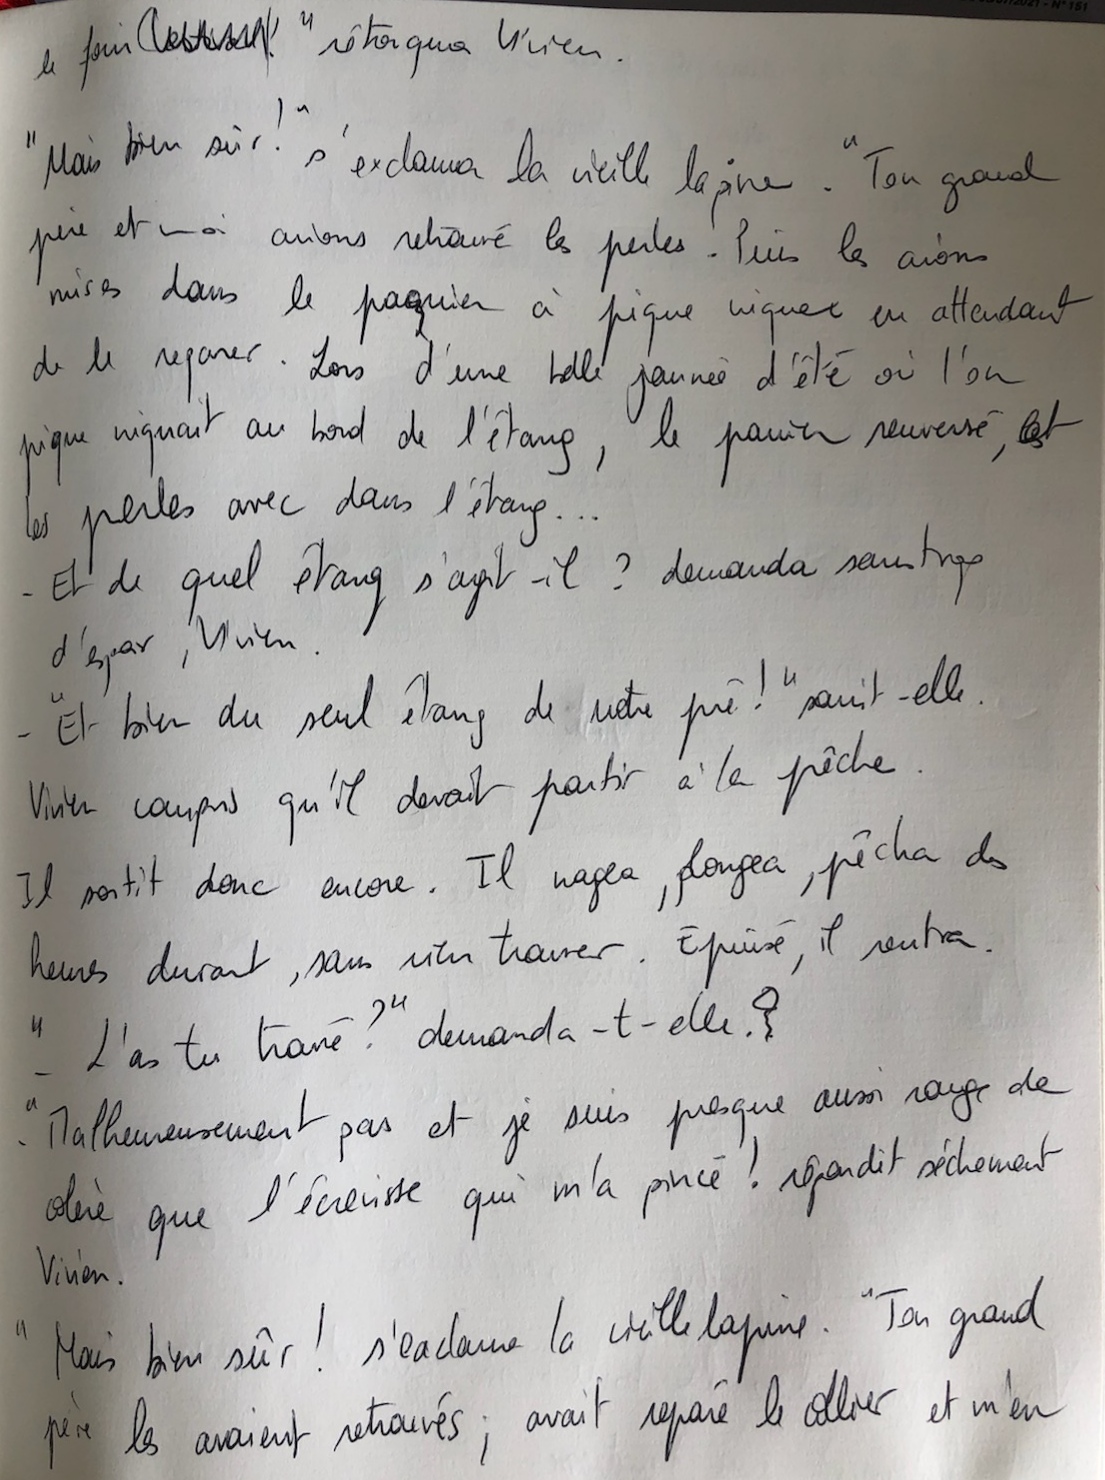 le foin " rétorqua Vivien.
"Mais bien sûr!" s'exclama la vieille lapine. "Ton grand
père et moi avions retrouvé les perles. Puis les avions
mises dans le panier à pique niquer en attendant
de le reparer. Lors d'une belle journée d'été où l'on
pique niquait au bord de l'étang, le panier renversé, et
les perles avec dans l'étang...
- Et de quel étang s'agit-il ? demanda sans trop
d'espoir, Vivien.
- "Et bien du seul étang de notre pré!" sourit-elle.
Vivien compris qu'il devait partir à la pêche.
Il sortit donc encore. Il nagea, plongea, pêcha des
heures durant, sans rien trouver. Epuisé, il rentra.
"- L'as tu trouvé?" demanda-t-elle.
"- Malheureusement pas et je suis presque aussi rouge de
colère que l'écrevisse qui m'a pincé! répondit séchement
Vivien.
"Mais bien sûr! s'exclama la vieille lapine. "Ton grand
père les avaient retrouvés; avait reparé le collier et m'en